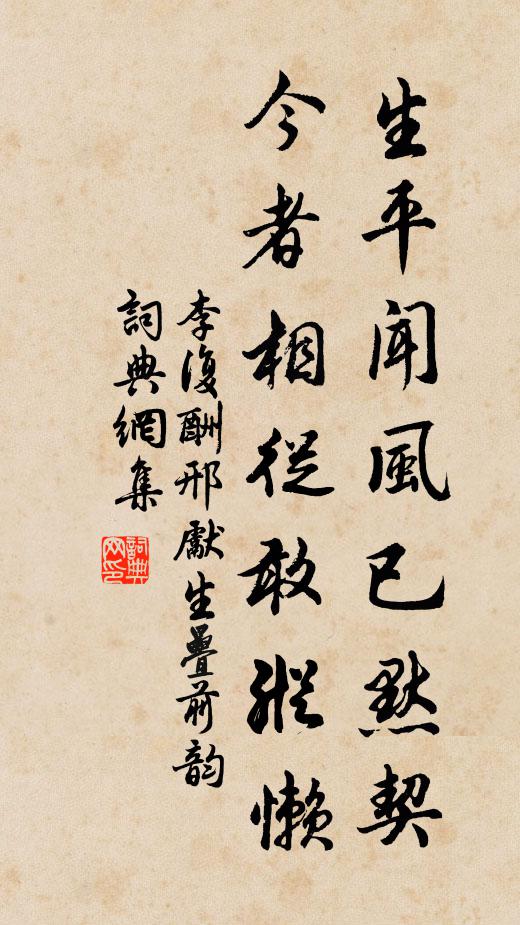 生平聞風已默契
今者相從敢縱懶
李復酬邢獻生疊前韵
詞典網集
詞典網印